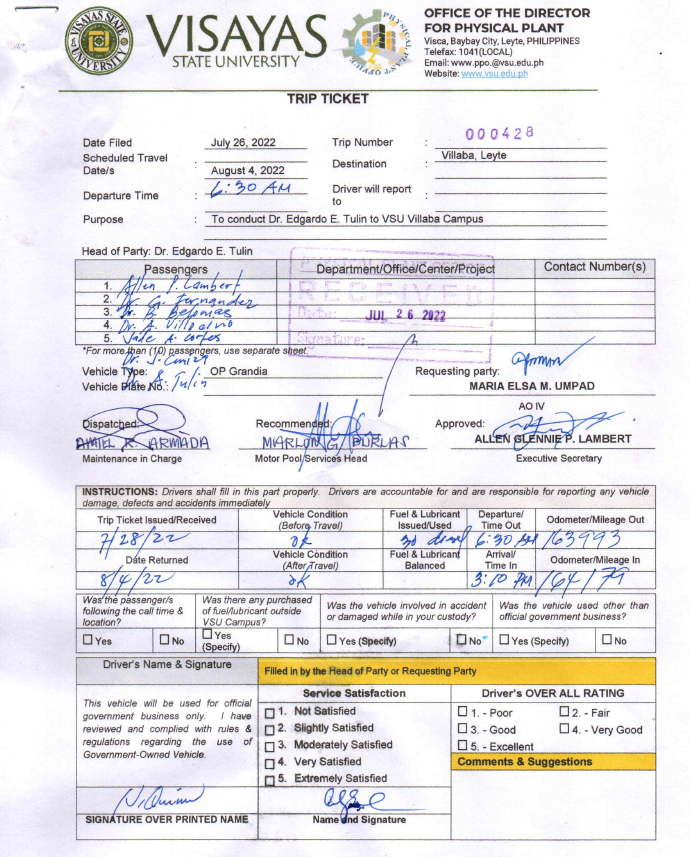 VISAYAS STATE UNIVERSITY
VISAYAS
STATE UNIVERSITY
PHYSICAL PLANT OFFICE
OFFICE OF THE DIRECTOR
FOR PHYSICAL PLANT
Visca, Baybay City, Leyte, PHILIPPINES
Telefax: 1041(LOCAL)
Email: www.ppo.@vsu.edu.ph
Website: www.vsu.edu.ph
TRIP TICKET
Date Filed July 26, 2022 Trip Number : 000428
Scheduled Travel Date/s : August 4, 2022 Destination : Villaba, Leyte
Departure Time : 6:30 AM Driver will report to :
Purpose : To conduct Dr. Edgardo E. Tulin to VSU Villaba Campus
Head of Party: Dr. Edgardo E. Tulin
Passengers Department/Office/Center/Project Contact Number(s)
1. Allen P. Lambert
2. Dr. G. Fernandez
3. Dr. B. Belonias
4. Dr. A. Villocino
5. Jade A. Cortes
RECEIVED
Date: JUL 26 2022
Signature:
*For more than (10) passengers, use separate sheet.
Vehicle Type: OP Grandia Requesting party:
Vehicle Plate No.: Tulin MARIA ELSA M. UMPAD
AO IV
Dispatched: Recommended: Approved:
MARLON G. BURLAS ALLEN GLENNIE P. LAMBERT
Maintenance in Charge Motor Pool/Services Head Executive Secretary
INSTRUCTIONS: Drivers shall fill in this part properly. Drivers are accountable for and are responsible for reporting any vehicle
damage, defects and accidents immediately
Trip Ticket Issued/Received Vehicle Condition (Before Travel) Fuel & Lubricant Issued/Used Departure/ Time Out Odometer/Mileage Out
7/28/22 ok 6:30 AM 163993
Date Returned Vehicle Condition (After Travel) Fuel & Lubricant Balanced Arrival/ Time In Odometer/Mileage In
8/4/22 ok 3:10 PM
Was the passenger/s following the call time & location? Was there any purchased of fuel/lubricant outside VSU Campus? Was the vehicle involved in accident or damaged while in your custody? Was the vehicle used other than official government business?
☐ Yes ☐ No ☐ Yes (Specify) ☐ No ☐ Yes (Specify) ☐ No ☐ Yes (Specify) ☐ No
Driver's Name & Signature Filled in by the Head of Party or Requesting Party
Service Satisfaction Driver's OVER ALL RATING
This vehicle will be used for official
government business only. I have
reviewed and complied with rules &
regulations regarding the use of
Government-Owned Vehicle.
☐ 1. Not Satisfied
☐ 2. Slightly Satisfied
☐ 3. Moderately Satisfied
☐ 4. Very Satisfied
☐ 5. Extremely Satisfied
☐ 1. - Poor ☐ 2. - Fair
☐ 3. - Good ☐ 4. - Very Good
☐ 5. - Excellent
Comments & Suggestions
SIGNATURE OVER PRINTED NAME Name and Signature